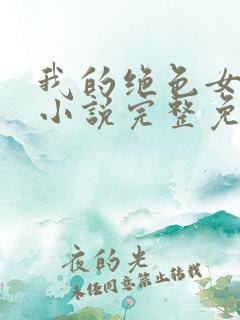 我的绝色女
小说完整免
夜的光
未经同意禁止转载